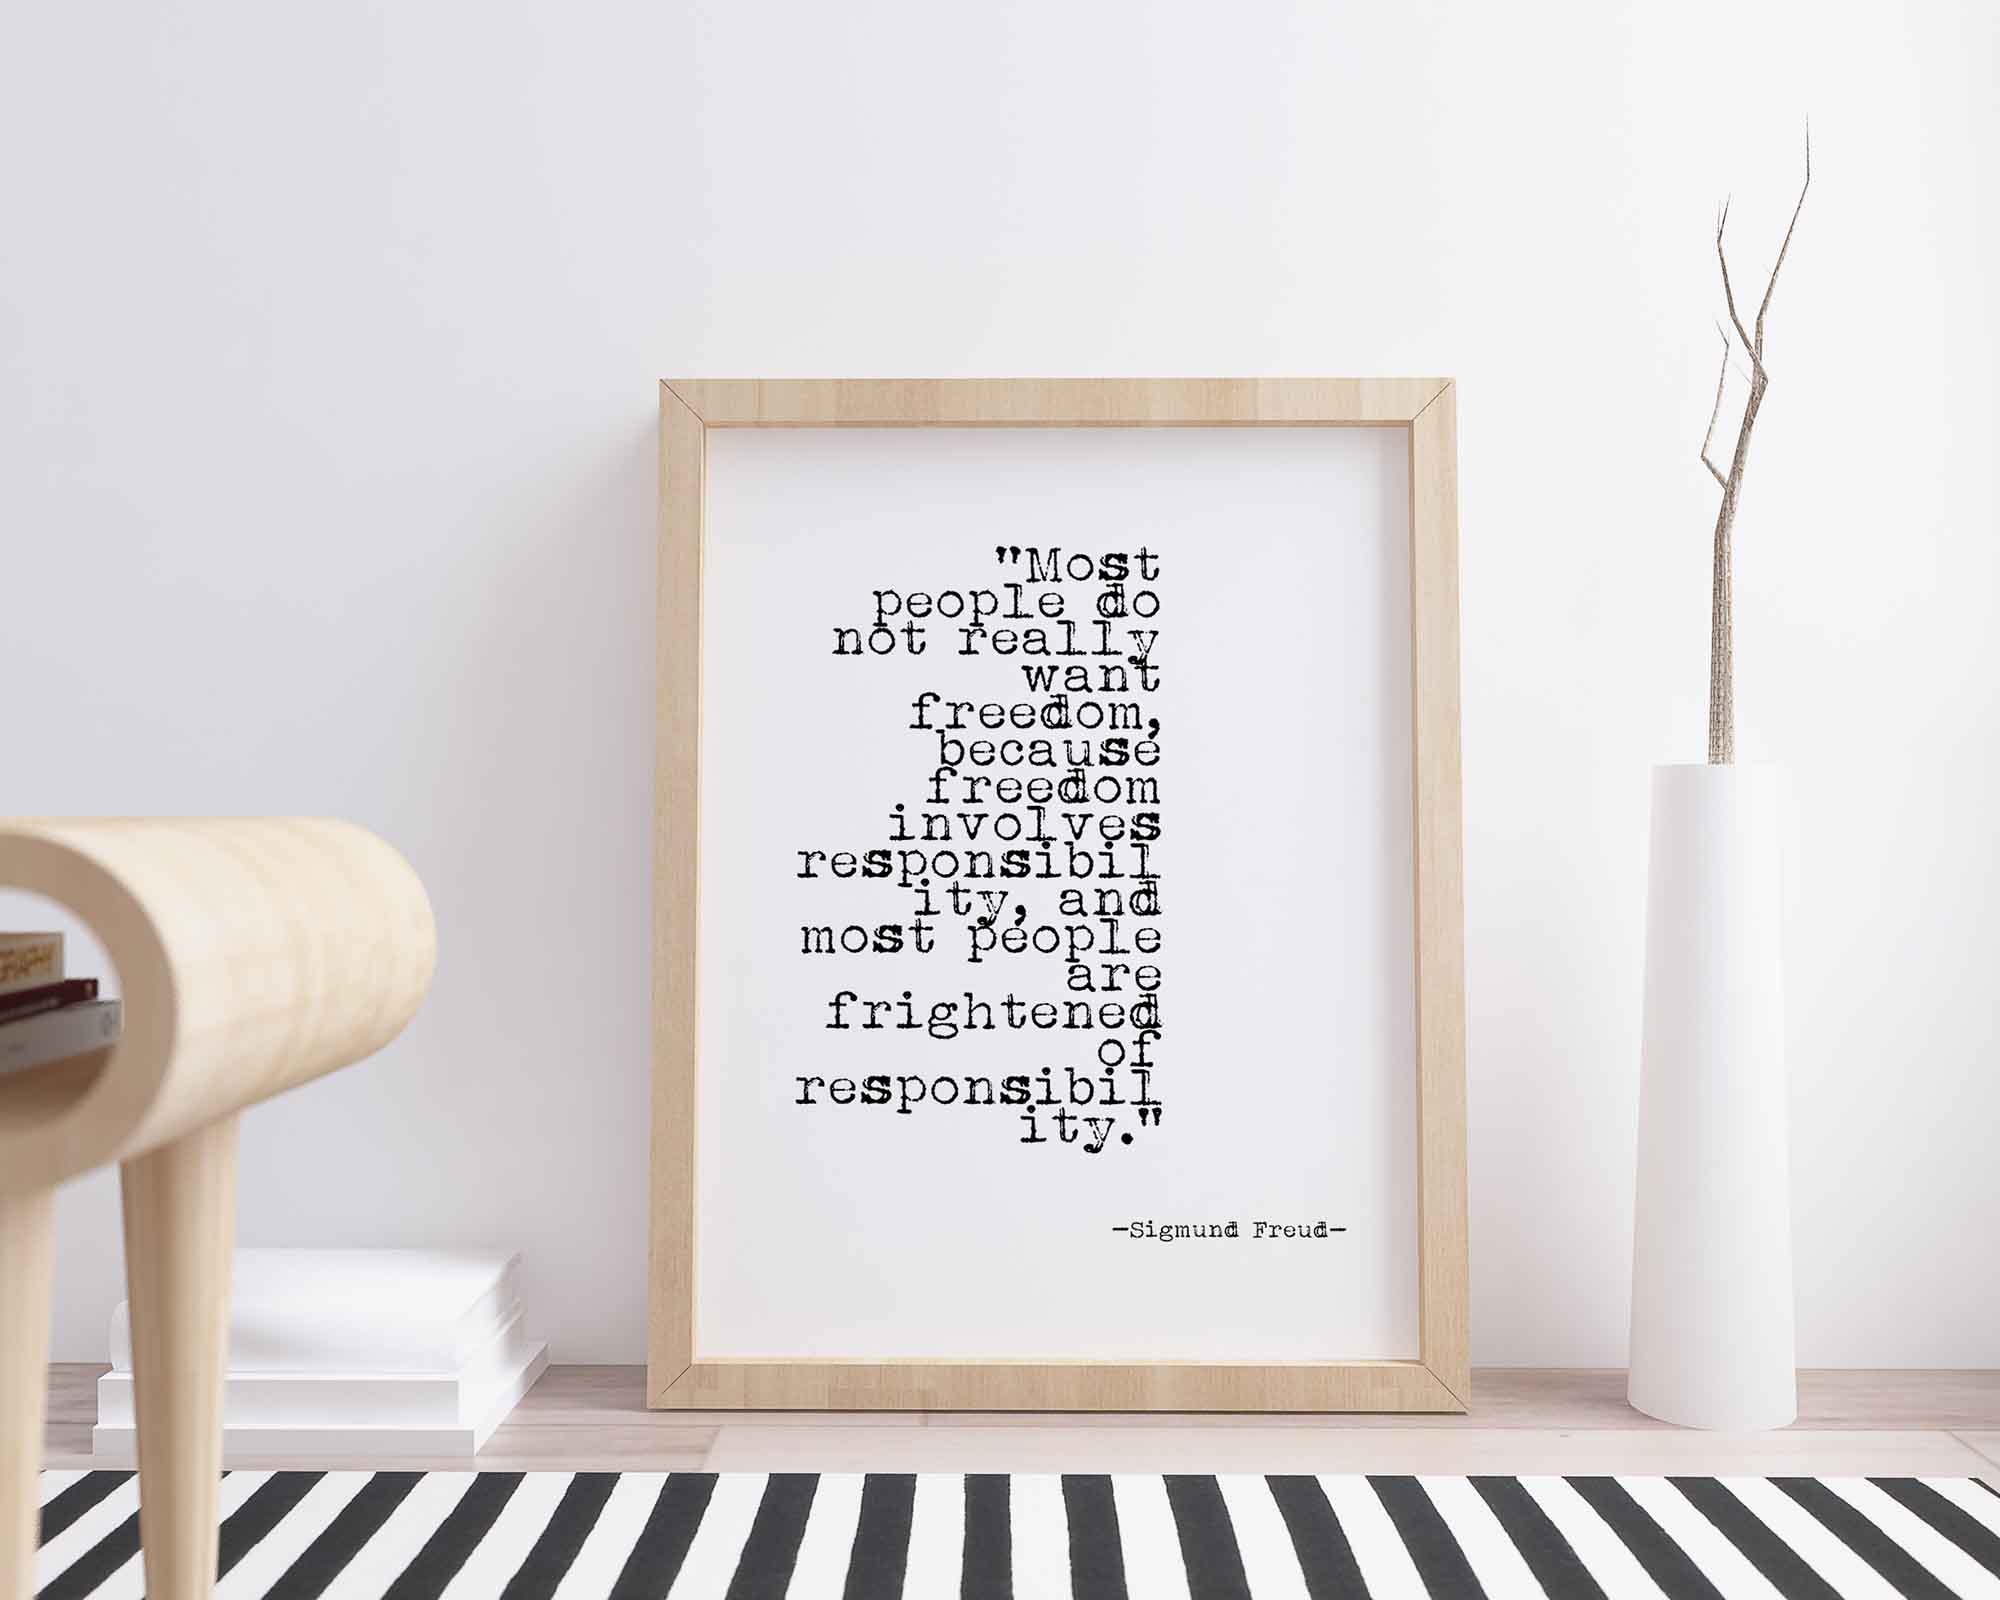 "Most
people do
not really
want
freedom,
because
freedom
involves
responsibil
ity, and
most people
are
frightened
of
responsibil
ity."
—Sigmund Freud—